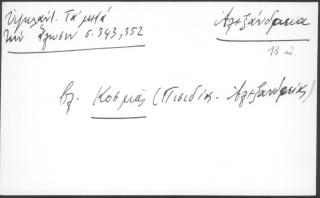 Ὑψηλάντ. Τὰ μετὰ
τὴν ἅλωσιν σ. 343, 352
Ἀλεξάνδρεια
18 αἰ.
βλ. Κοσμᾶς (Πισιδίας - Ἀλεξανδρείας)